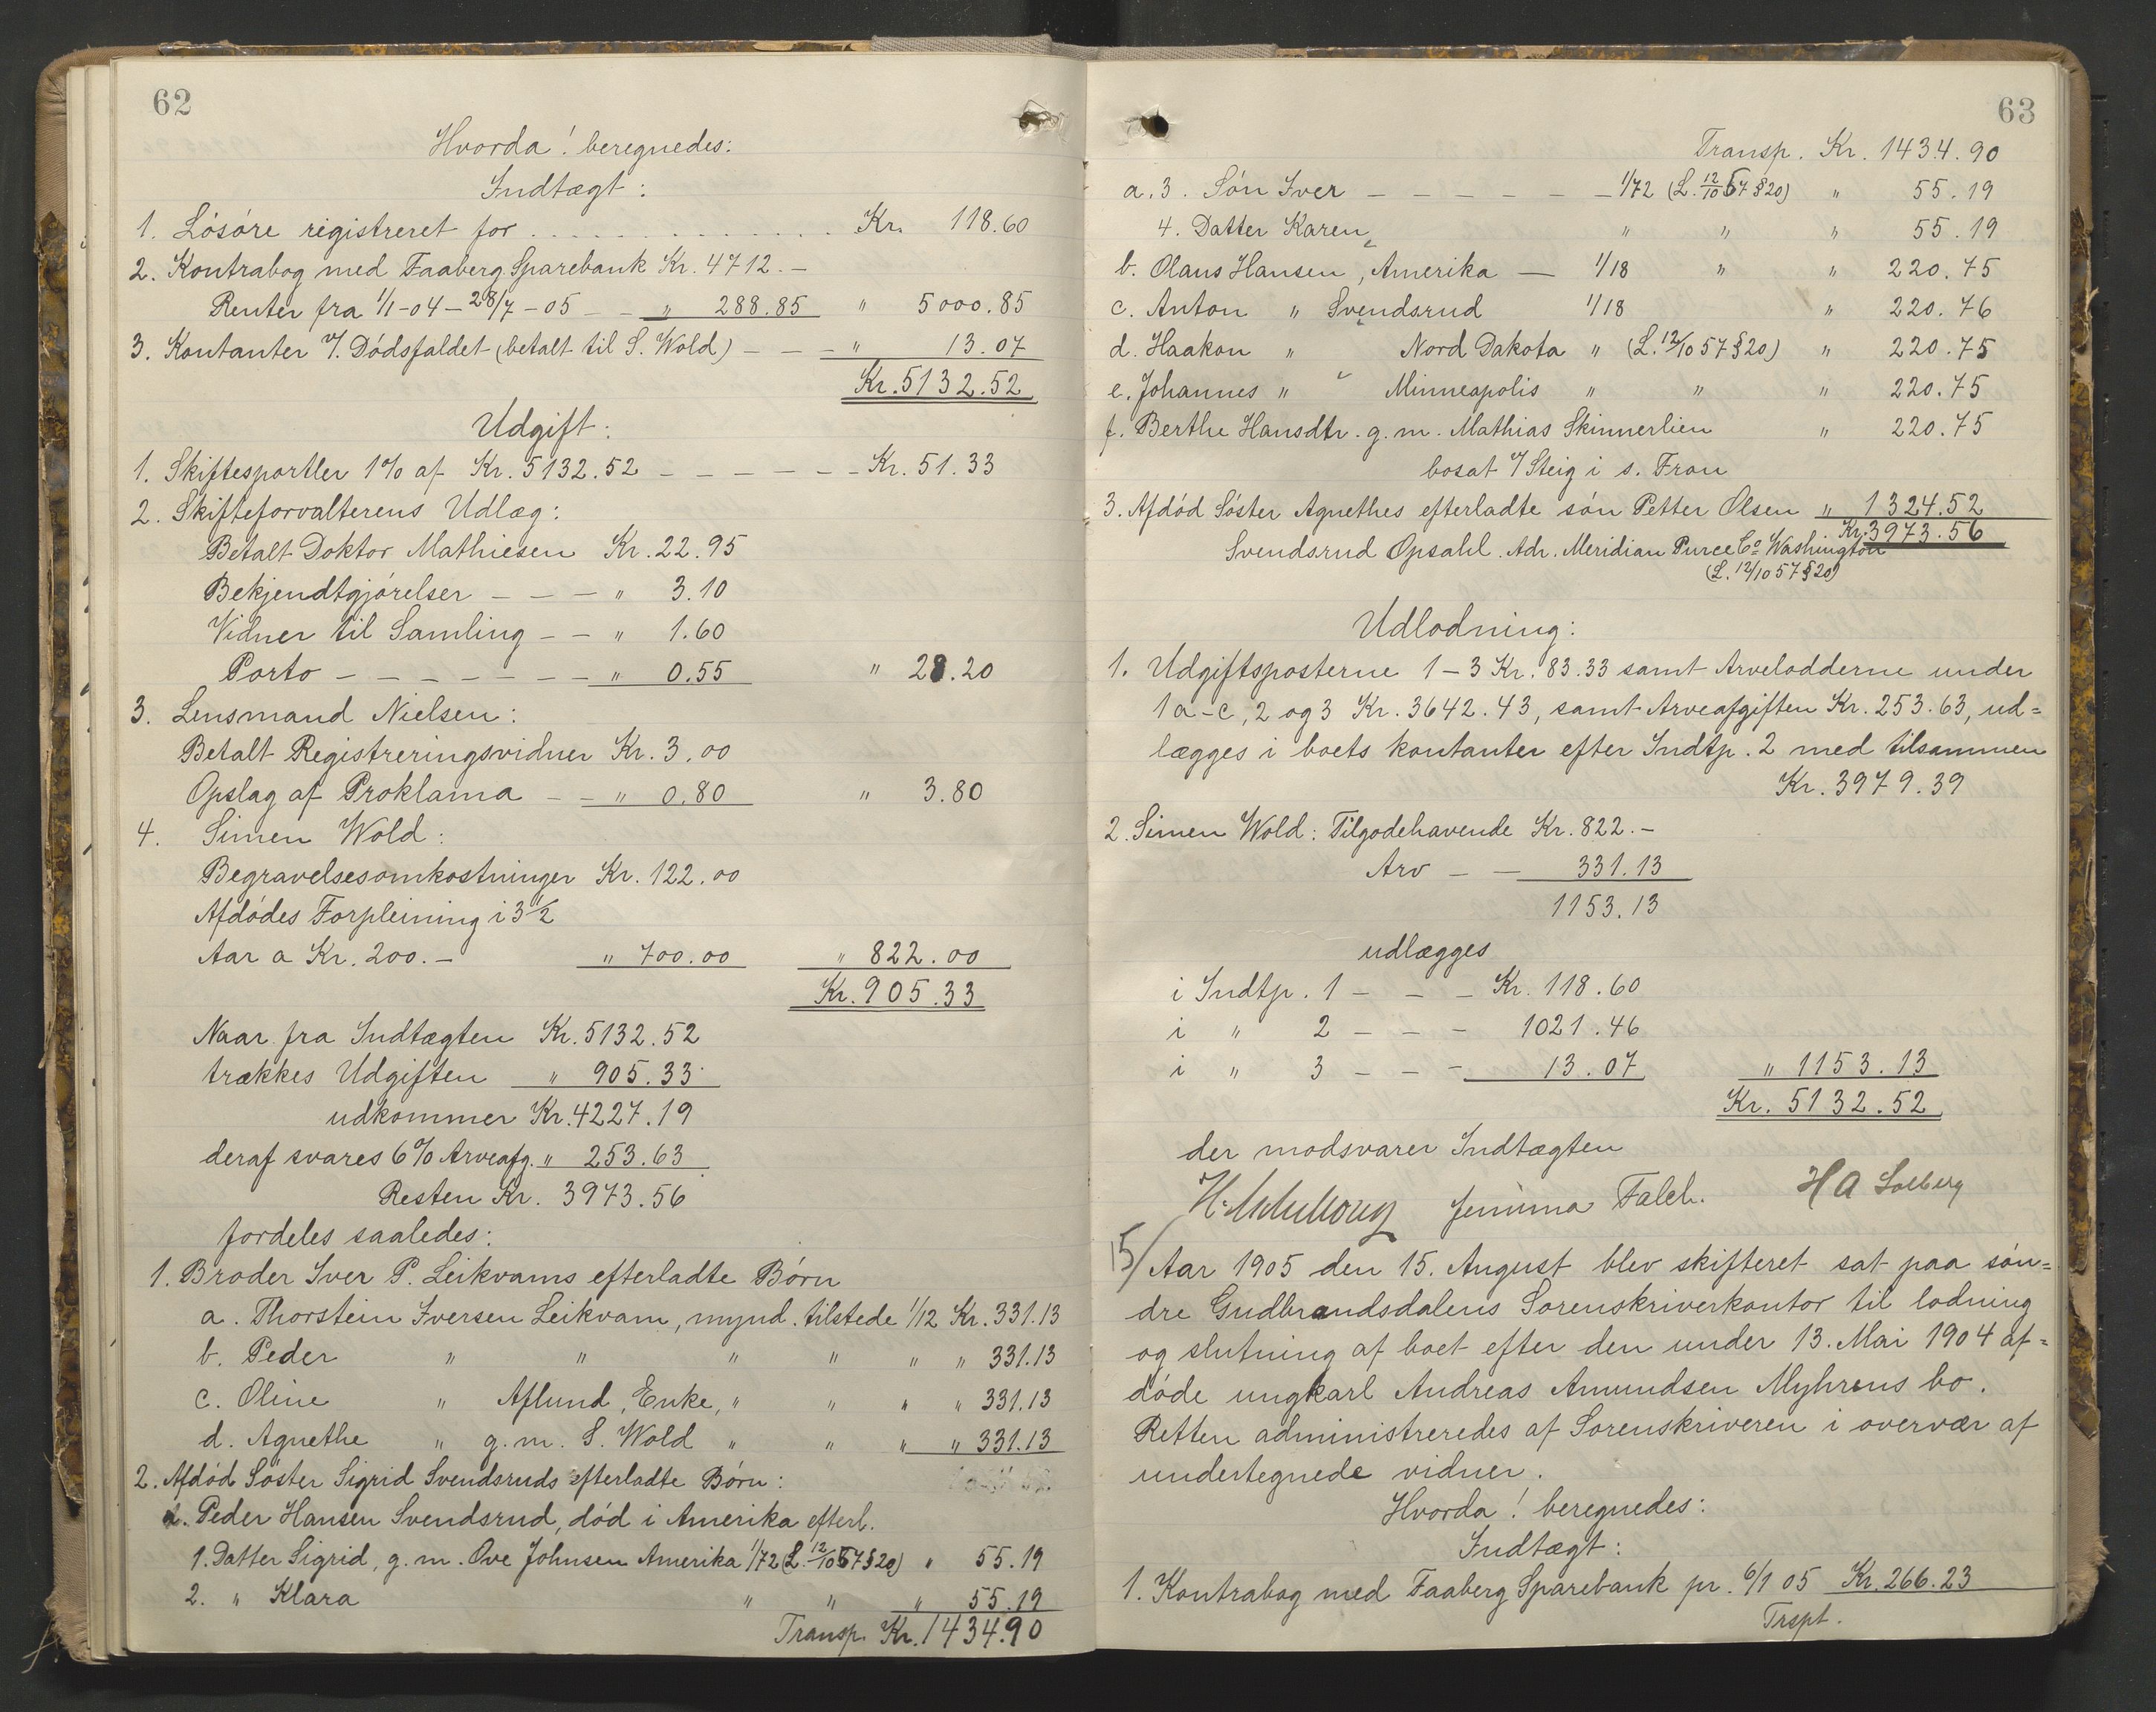 62
Hvorda! beregnedes:
Indtægt:
1. Løsøre registreret for . . . . . . . . . . . . . Kr. 118.60
2. Kontrabog med Faaberg Sparebank Kr. 4712.–
Renter fra 1/1-04 – 28/7-05 – – " 288.85 " 5000.85
3. Kontanter v/. Dødsfaldet (betalt til S. Wold) – – – " 13.07
Kr. 5132.52
Udgift:
1. Skiftesportler 1% af Kr. 5132.52 – – – – – – Kr. 51.33
2. Skifteforvalterens Udlæg:
Betalt Doktor Mathiesen Kr. 22.95
Bekjendtgjørelser – – – " 3.10
Vidner til Samling – – " 1.60
Porto – – – – – – – " 0.55 " 28.20
3. Lensmand Nielsen:
Betalt Registreringsvidner Kr. 3.00
Opslag af Proklama – – " 0.80 " 3.80
4. Simen Wold:
Begravelsesomkostninger Kr. 122.00
Afdødes Forpleining i 3 1/2
Aar a Kr. 200.– " 700.00 " 822.00
Kr. 905.33
Naar fra Indtægten Kr. 5132.52
trækkes Udgiften " 905.33
udkommer Kr. 4227.19
deraf svares 6% Arveafg. " 253.63
Resten Kr. 3973.56
fordeles saaledes:
1. Broder Iver P. Leikvams efterladte Børn
a. Thorstein Iversen Leikvam, mynd. tilstede 1/12 Kr. 331.13
b. Peder " " " " " " 331.13
c. Oline " Aflund, Enke, " " " " 331.13
d. Agnethe " g.m. S. Wold " " " " 331.13
2. Afdød Søster Sigrid Svendsruds efterladte Børn:
a. Peder Hansen Svendsrud, død i Amerika efterl.
1. Datter Sigrid, g.m. Ove Johnsen Amerika 1/72 (L. 12/10 57 § 20) " 55.19
2. " Klara " " " 55.19
Transp. Kr. 1434.90
63
Transp. Kr. 1434.90
a. 3. Søn Iver – – – – – – 1/72 (L. 12/10 57 § 20) " 55.19
4. Datter Karen " " " 55.19
b. Olaus Hansen, Amerika – 1/18 " " 220.75
c. Anton " Svendsrud 1/18 " 220.76
d. Haakon " Nord Dakota " (L. 12/10 57 § 20) " 220.75
e. Johannes " " Minneapolis " " " 220.75
f. Berthe Hansdtr. g.m. Mathias Skinnerlien " 220.75
bosat v/ Steig i s. Fron
3. Afdød Søster Agnethes efterladte søn Petter Olsen " 1324.52
Kr. 3973.56
Svendsrud Opsahl. Adr. Meridian Purce Co Washington
(L. 12/10 57 § 20)
Udlodning:
1. Udgiftsposterne 1–3 Kr. 83.33 samt Arvelodderne under
1a-c, 2 og 3 Kr. 3642.43, samt Arveafgiften Kr. 253.63, ud=
lægges i boets kontanter efter Indtp. 2 med tilsammen
Kr. 3979.39
2. Simen Wold: Tilgodehavende Kr. 822.–
Arv – – 331.13
1153.13
udlægges
i Indtp. 1 – – – Kr. 118.60
i " 2 – – – 1021.46
i " 3 – – – 13.07 " 1153.13
Kr. 5132.52
der modsvarer Indtægten
Jemima Falch. H A Solberg
15/ Aar 1905 den 15. August blev skifteret sat paa søn=
dre Gudbrandsdalens Sorenskriverkontor til lodning
og slutning af boet efter den under 13. Mai 1904 af=
døde ungkarl Andreas Amundsen Myhrens bo.
Retten administreredes af Sorenskriveren i overvær af
undertegnede vidner.
Hvorda! beregnedes:
Indtægt:
1. Kontrabog med Faaberg Sparebank pr. 6/1 05 Kr. 266.23
Trspt.